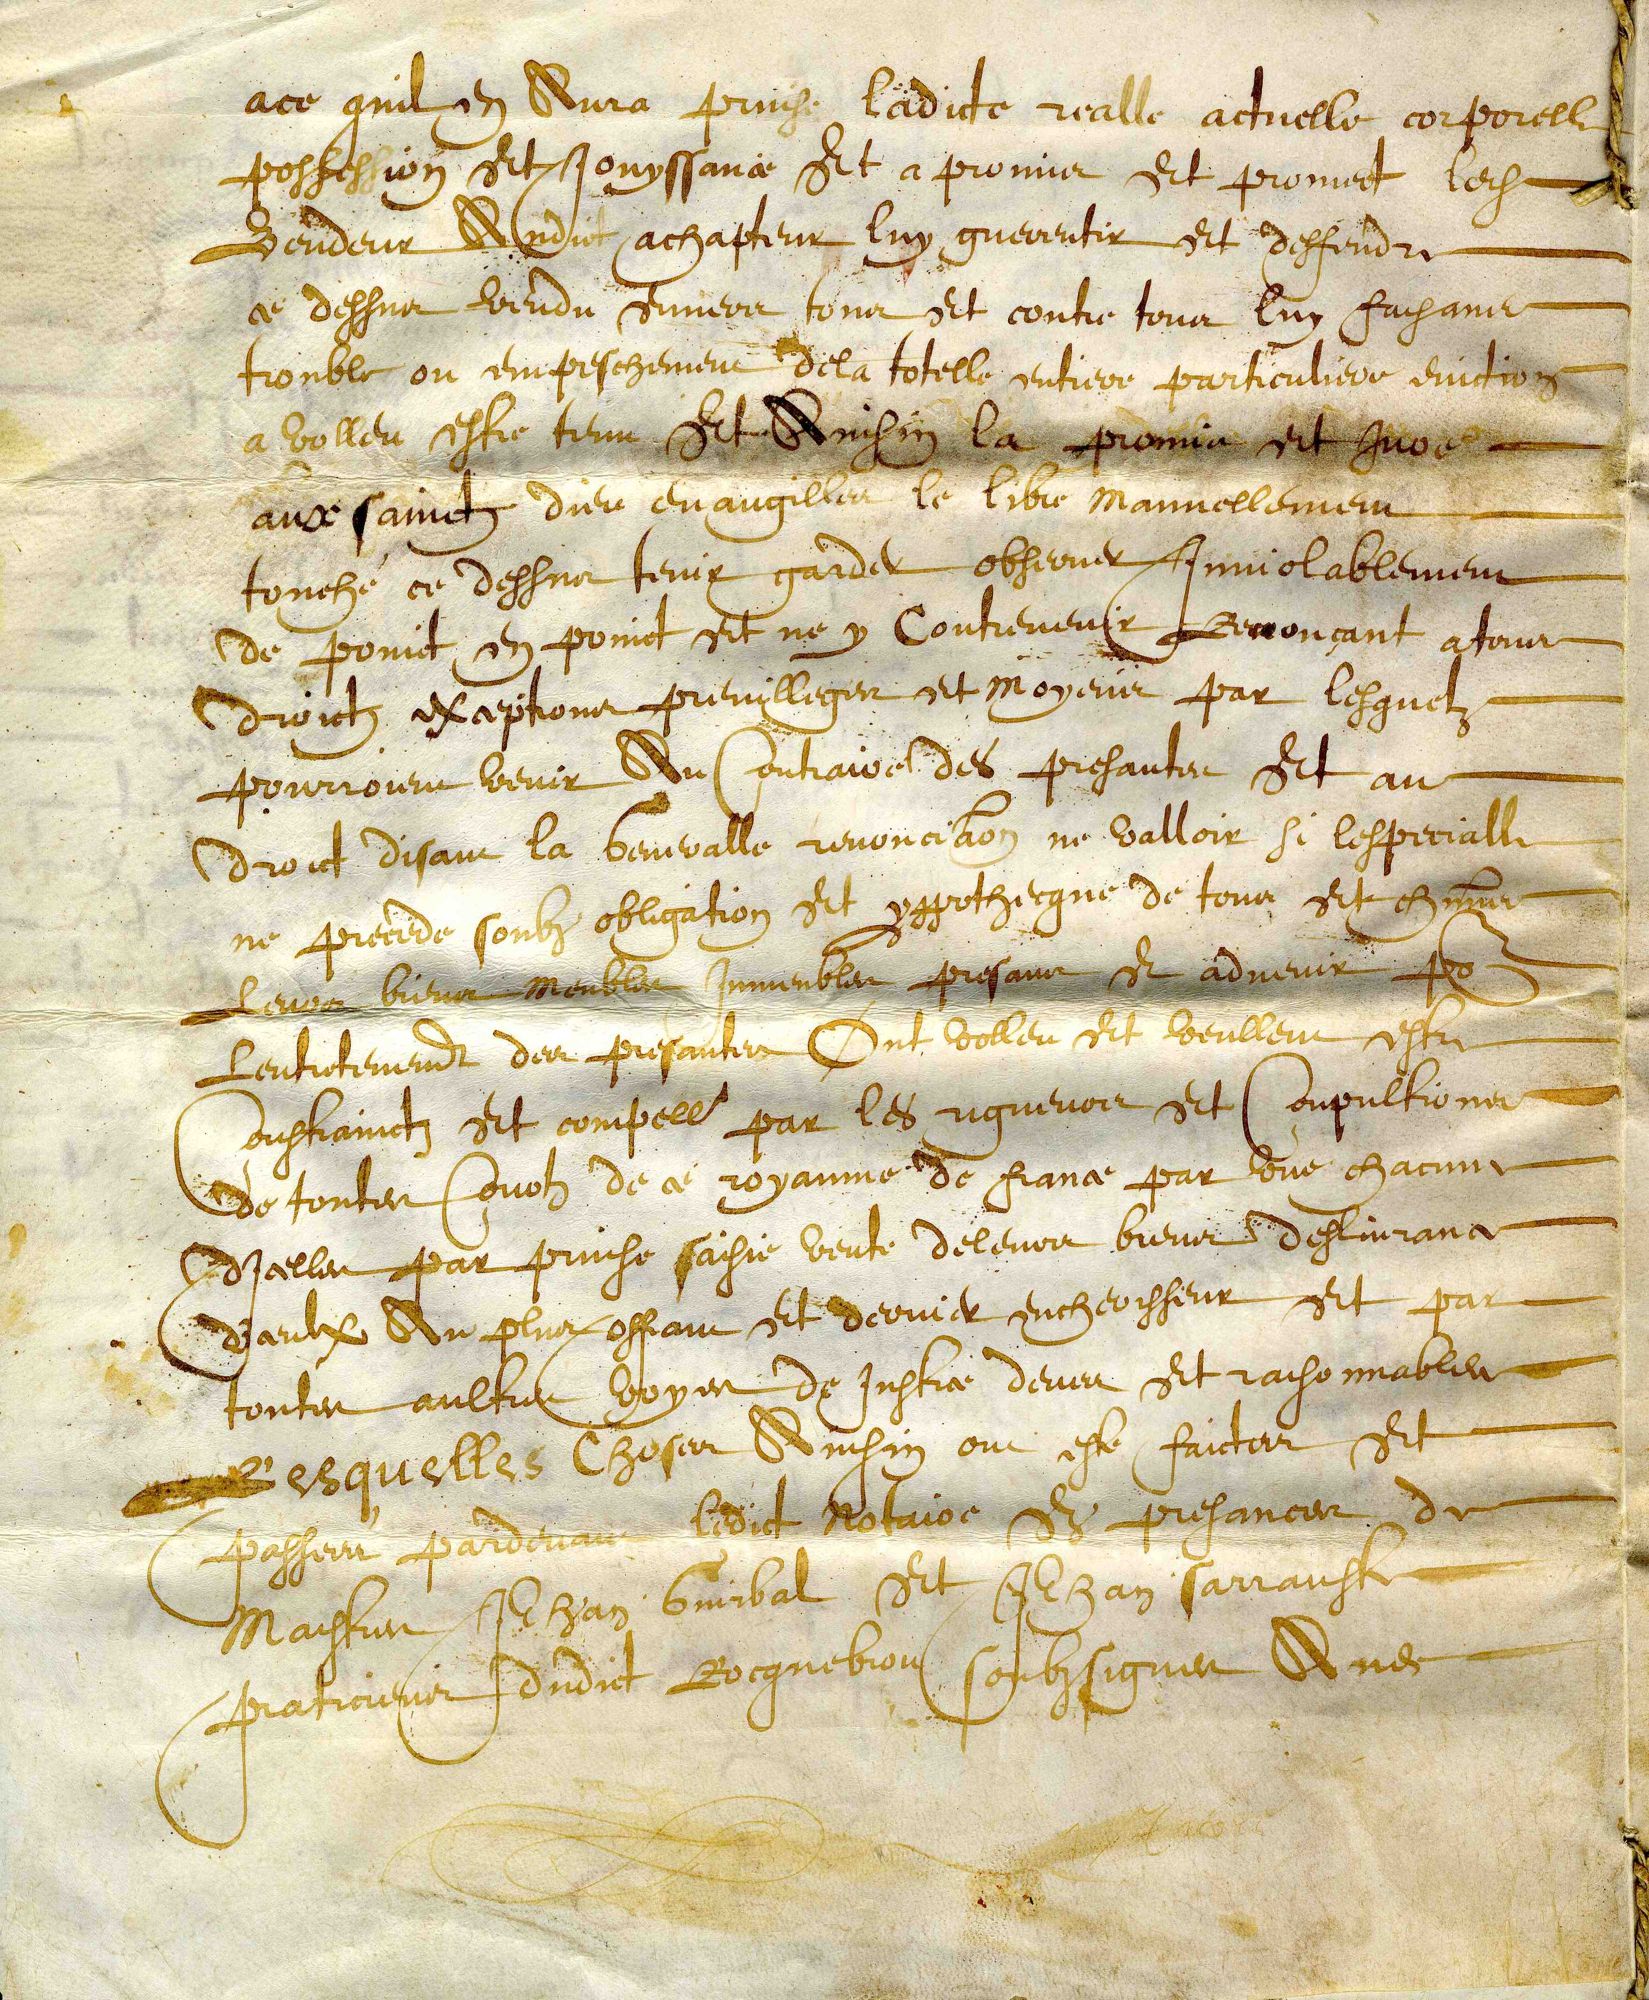 ace quil en Aura prinse ladicte realle actuelle corporelle
possession Et Jouyssance Et a promis Et promect led
Vendeur Audict achapteur luy guerentir Et deffendre
ce dessus vendu envers tous Et contre tous luy faisans
trouble ou empeschement dela totelle entiere particuliere eviction
a volleu estre tenu Et Ainsin la promis Et Jure
aux sainctz dieu evangilles le libre Manuellement
touché ce dessus tenir garder observer Inviolablement
de poinct en poinct Et ne y Contrevenir Renonçant a tous
droictz exceptions previlleges et Moyens par lesquelz
pourroient venir Au Contraire des presantes Et au
droict disant la Generalle renonciaon ne valloir si lespecialle
ne precede soubz obligation Et yppothecque de tous Et chūns
Leurs biens Meubles Immeubles presans Et advenir po
Lentretenement des presantes Ont volleu Et veullent estre
Constrainctz Et compellé par les rigueurs Et Conpultions
de toutes Courtz de ce royaume de france par une chacune
dJcelles par prinse saisie vente deleurs biens deslivrance
d'aulx Au plus offrant Et dernier encherisseur Et par
toutes aultres voyes de Justice deues Et raisonnables
Lesquelles Choses Ainsin ont esté faictes Et
passees pardevant ledict Notaire Es presances de
Maistres Jehan Guirbal Et Jehan sarrauste
praticiens dudict Rocquebrou soubzsignes Avec